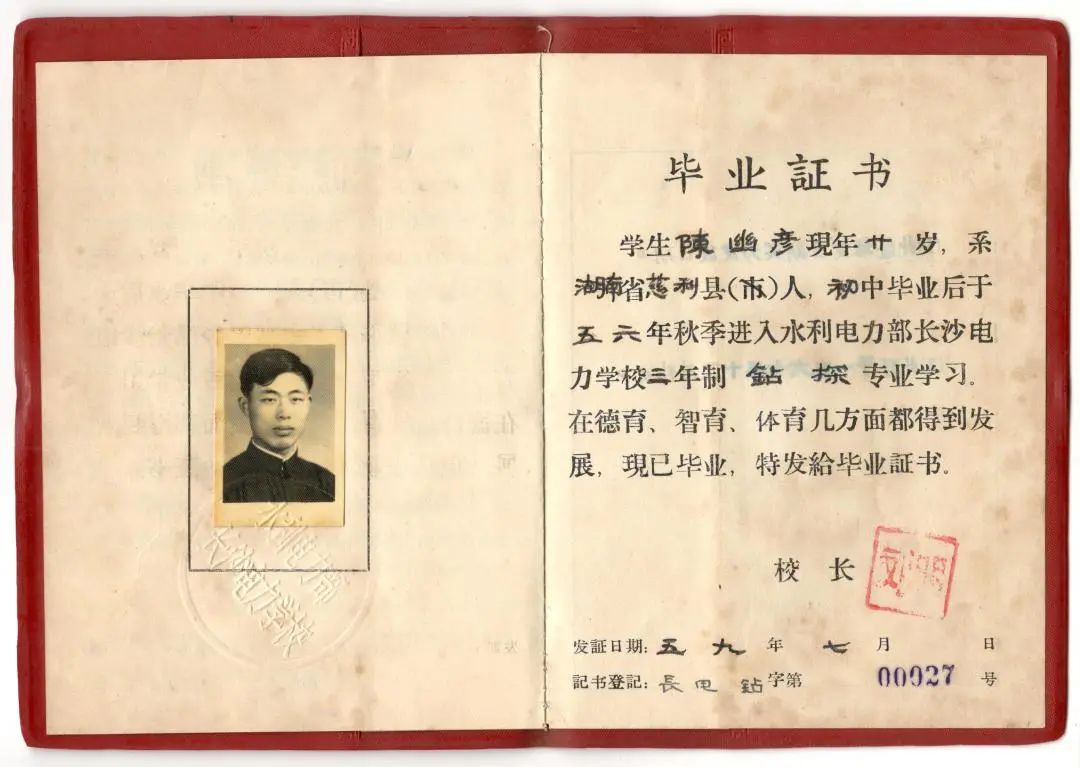 水利电力部
长沙电力学校
毕业証书
学生陳幽彦現年廿岁，系
湖南省慈利县(市)人，初中毕业后于
五六年秋季进入水利电力部长沙电
力学校三年制鉆探专业学习。
在德育、智育、体育几方面都得到发
展，現已毕业，特发給毕业証书。
校长
发証日期：五九年七月 日
証书登記：長电鉆字第00027号